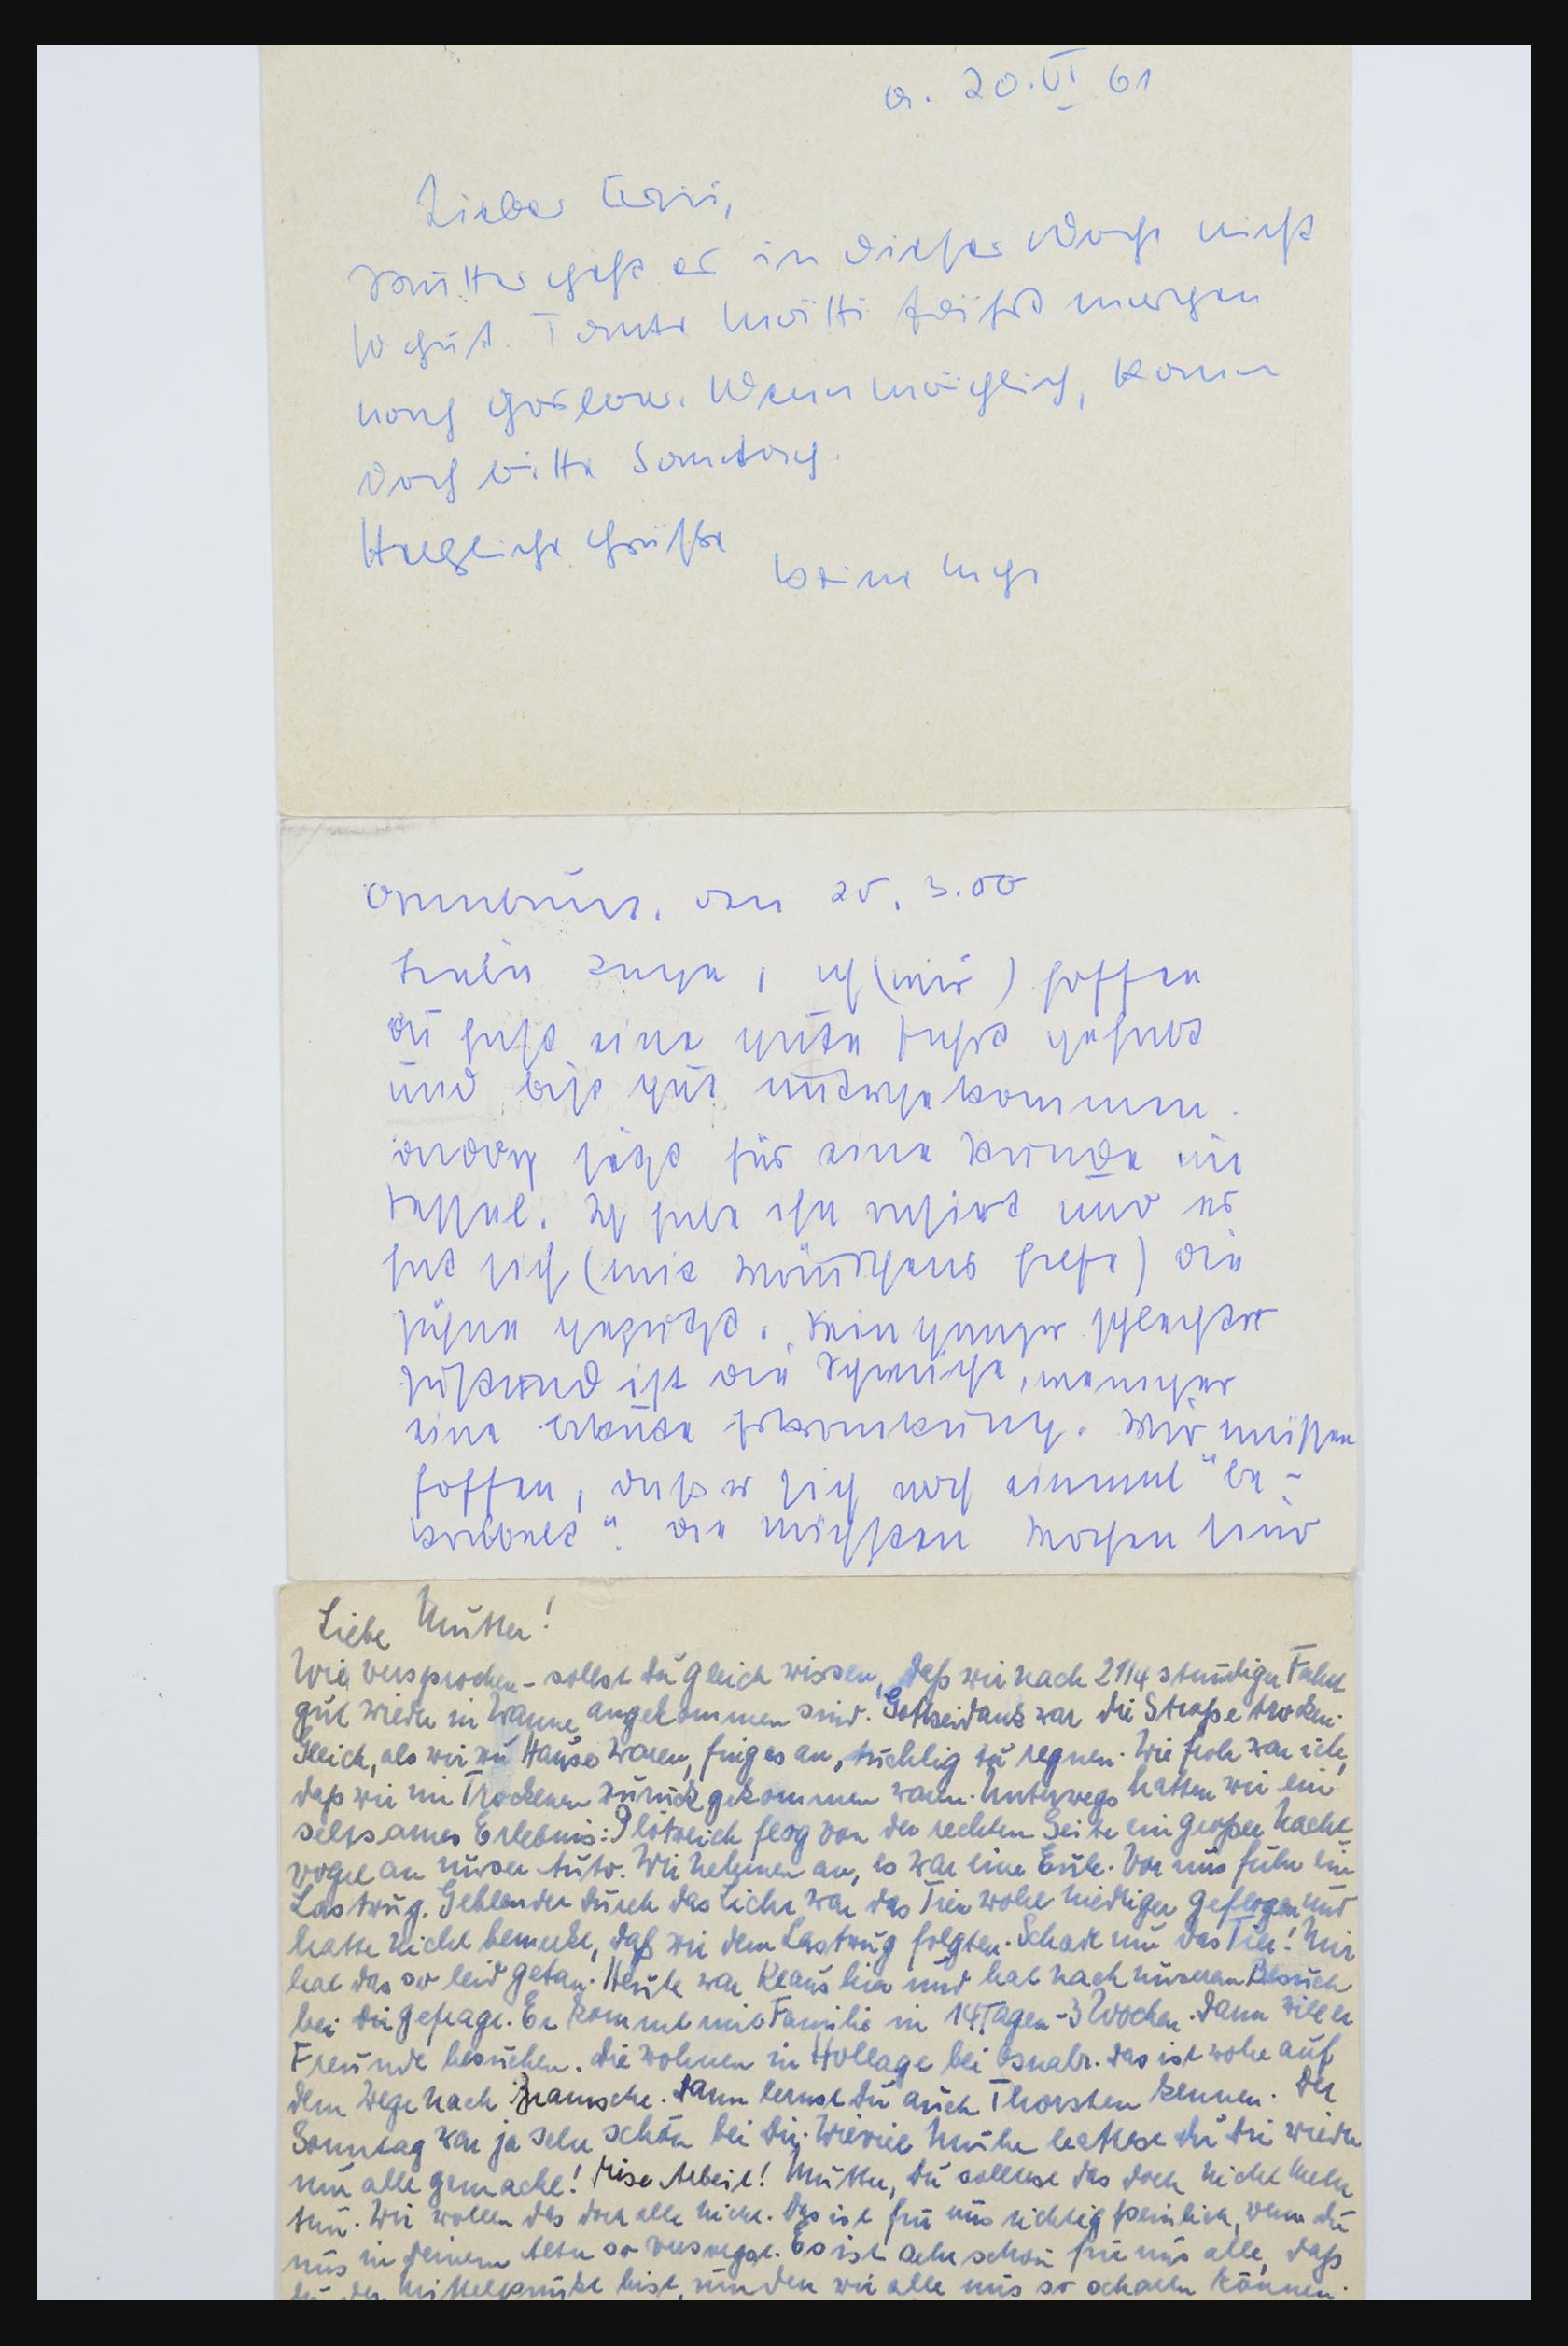 O. 20. VI 61
Lieber
Mutter geht es in dieser Woche nicht
so gut. Tante fährt morgen
nach Goslar. Wenn möglich, komm
doch bitte Sonntag.
Herzliche Grüße
Deine Inge
Osnabrück, den 25. 3.
Liebe Inge, ich (wir) hoffen
Du hast eine gute Fahrt gehabt
und bist gut
sitzt für eine Stunde im
Sessel. Ich habe ihn rasiert und er
hat sich (mit Hilfe) die
Zähne geputzt. Sein ganzer schlechter
Zustand ist die Schwäche, weniger
eine akute Erkrankung. Wir müssen
hoffen, daß er sich noch einmal "be-
krabbelt". Die nächsten Wochen sind
Liebe Mutter!
Wie versprochen - sollst Du gleich wissen, daß wir nach 2 1/4 stündiger Fahrt
gut wieder in Wanne angekommen sind. Gottseidank war die Straße trocken.
Gleich, als wir zu Hause waren, fing es an, tüchtig zu regnen. Wie froh war ich,
daß wir im Trockenen zurückgekommen waren. Unterwegs hatten wir ein
seltsames Erlebnis: Plötzlich flog von der rechten Seite ein großer Nacht-
vogel an unser Auto. Wir nehmen an, es war eine Eule. Vor uns fuhr ein
Lastzug. Geblendet durch das Licht war das Tier wohl niedriger geflogen und
hatte nicht bemerkt, daß wir dem Lastzug folgten. Schade um das Tier! Mir
hat das so leid getan. Heute war Klaus hier und hat nach unserem Besuch
bei Dir gefragt. Er kommt mit Familie in 14 Tagen - 3 Wochen. Dann will er
Freunde besuchen. Die wohnen in Hollage bei Osnabr. Das ist wohl auf
dem Wege nach Bramsche. Dann lernst Du auch Thorsten kennen. Der
Sonntag war ja sehr schön bei Dir. Wieviel Mühe hattest Du Dir wieder
um alle gemacht! Arbeit! Mutter, Du solltest das doch nicht mehr
tun. Wir wollen das doch alle nicht. Das ist für uns richtig peinlich, wenn Du
uns in Deinem Alter so versorgst. Es ist sehr schön für uns alle, daß
Du der Mittelpunkt bist, um den wir alle uns so scharen können.